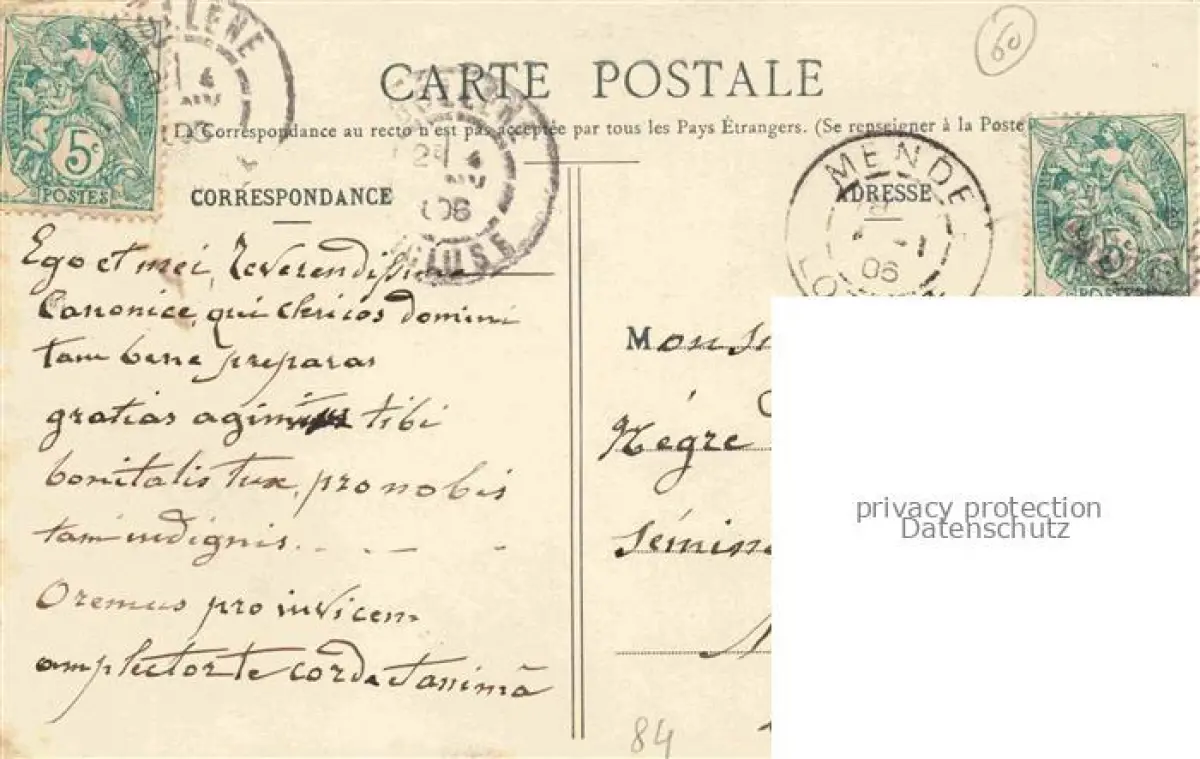 CARTE POSTALE
La Correspondance au recto n'est pas acceptée par tous les Pays Étrangers. (Se renseigner à la Poste
60
5c
POSTES
4
06
4
08
CORRESPONDANCE
Ego et mei, Reverendissime
Canonice, qui clericos domini
tam bene preparas
gratias agimus tibi
bonitatis tuæ, pro nobis
tam indignis. . _ _ .
Oremus pro invicem
amplector te corde et animā
MENDE
ADRESSE
06
5c
POSTES
Négre
privacy protection
Datenschutz
84